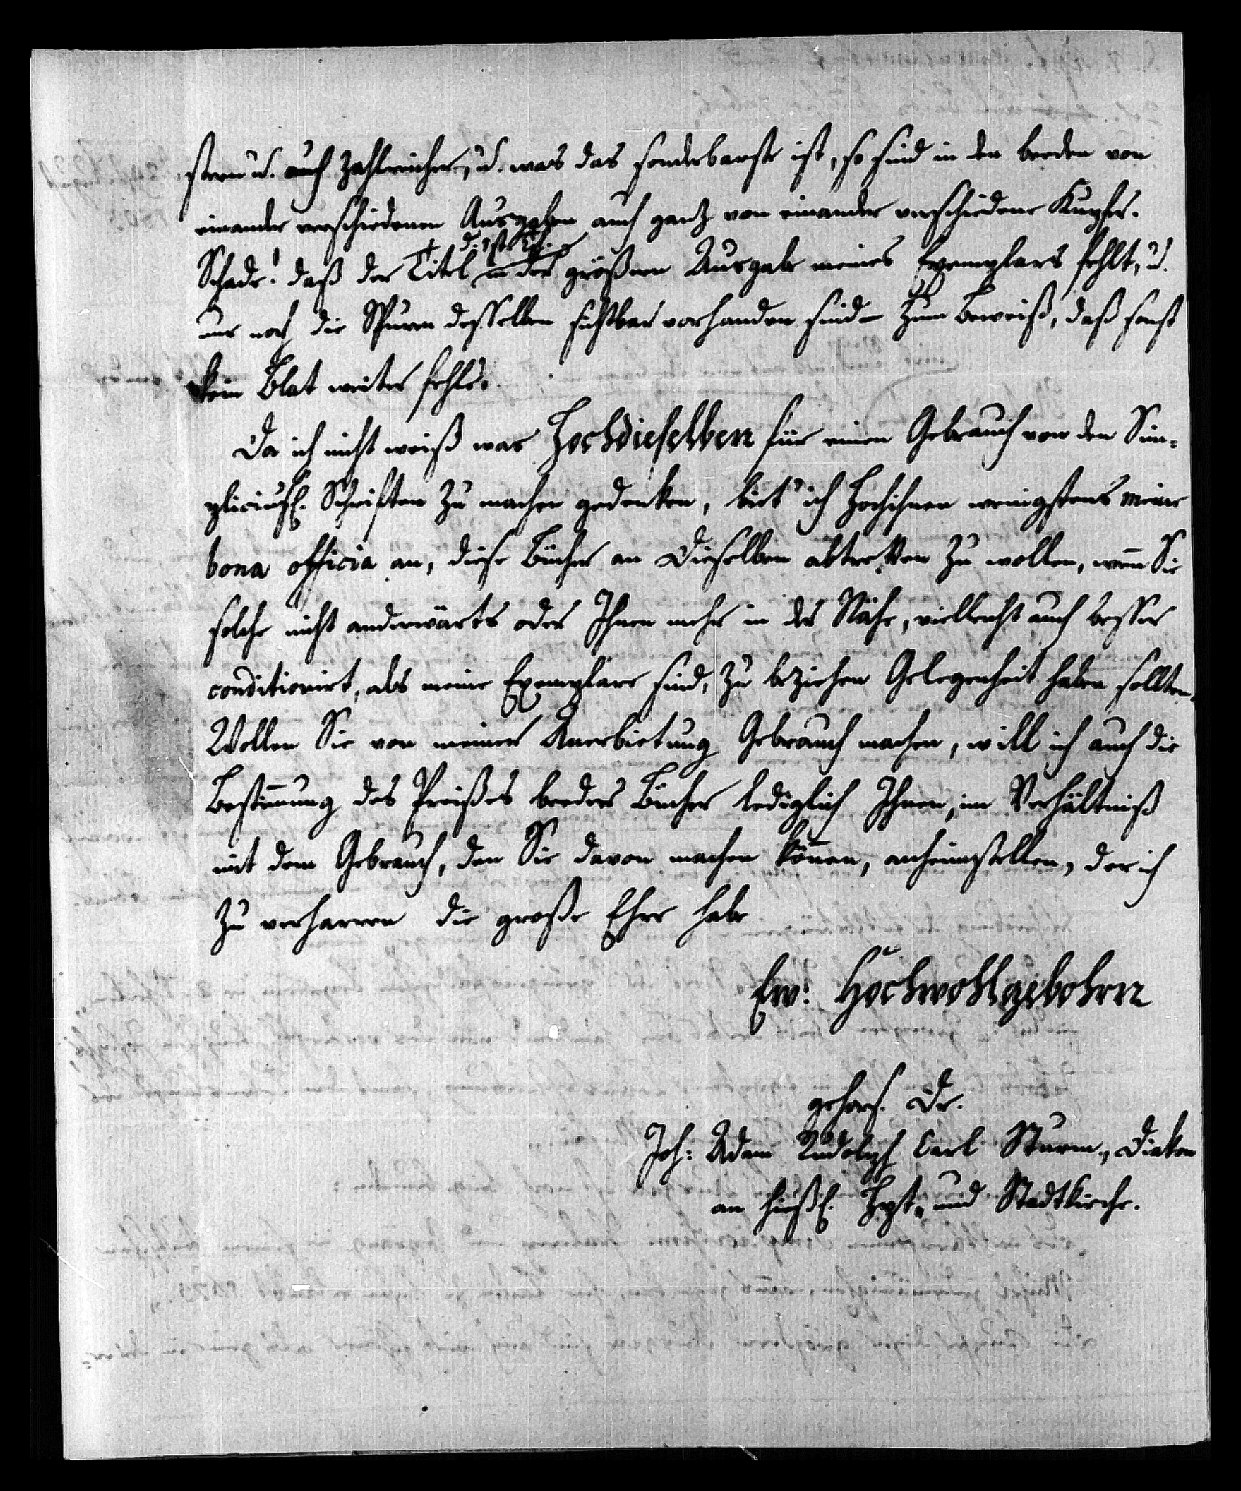 stern u. auch zahlreicher, u. was das sonderbarste ist, so sind in den beeden von
einander verschiedenen Ausgaben auch gantz von einander verschiedene Kupfer.
Schade! daß der Titl in der größern Ausgabe meines Exemplars fehlt, u.
nur noch die Spuren desselben sichtbar vorhanden sind – zum Beweiß, daß sonst
kein Blat weiter fehle.
Da ich nicht weiß was Hochdieselben für einen Gebrauch von den Sim-
pliciusl. Schriften zu machen gedenken, biet' ich Hochihnen wenigstens meine
bona officia an, diese Bücher an Dieselben abtretten zu wollen, wenn Sie
solche nicht anderwärts oder Ihnen mehr in der Nähe, vielleicht auch besser
conditionirt, als meine Exemplare sind, zu beziehen Gelegenheit haben sollten.
Wollen Sie von meiner Anerbietung Gebrauch machen, will ich auch die
Bestimmung des Preißes beeder Bücher lediglich Ihnen, im Verhältniß
mit dem Gebrauch, den Sie davon machen können, anheimstellen, der ich
zu verharren die große Ehre habe
Ew. Hochwohlgebohrn
gehors. Dr.
Joh: Adam Rudolph Carl Sturm, Diakon
an hießl. Hpt- und Stadtkirche.